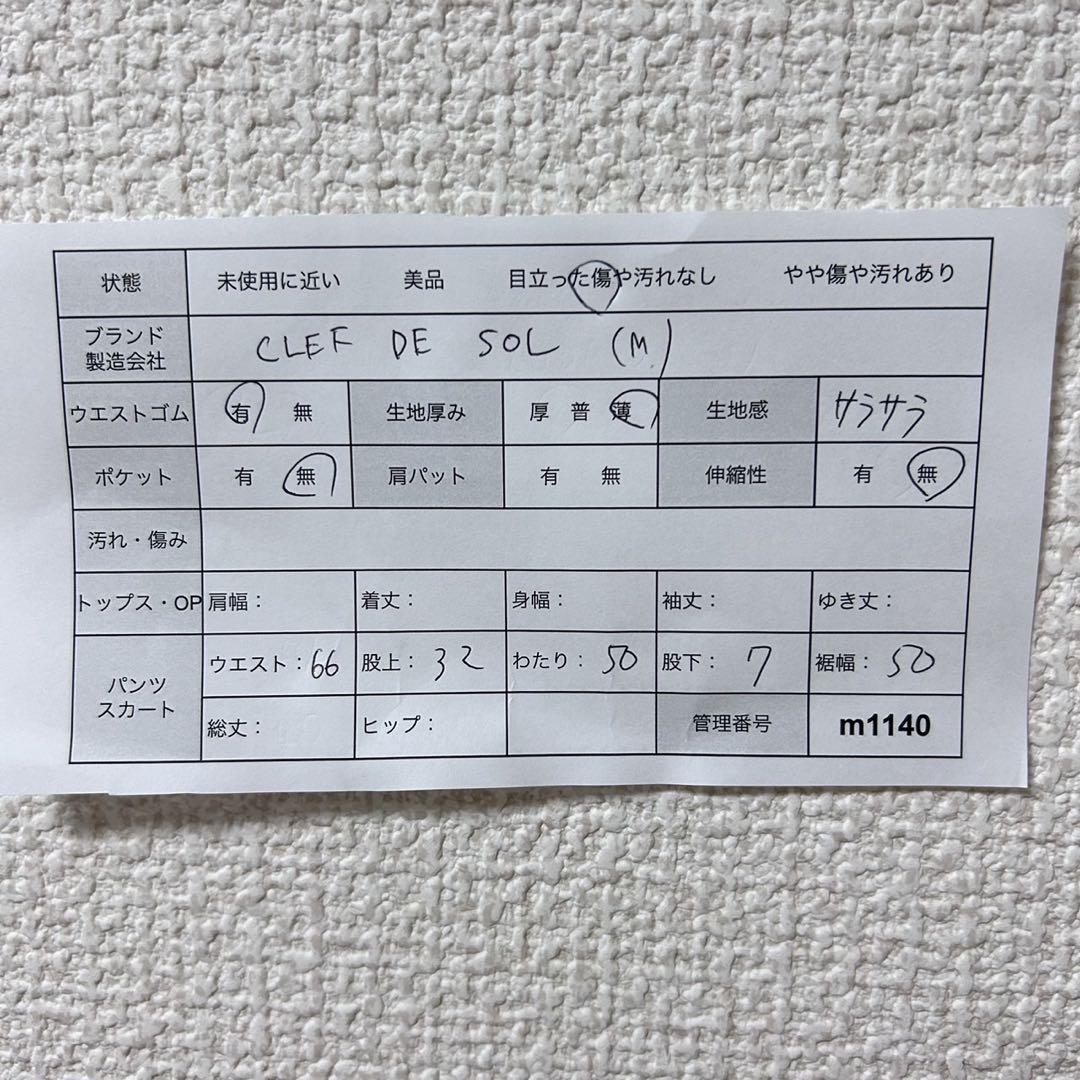 状態 未使用に近い 美品 目立った傷や汚れなし やや傷や汚れあり
ブランド
製造会社 CLEF DE SOL (M)
ウエストゴム 有 無 生地厚み 厚 普 薄 生地感 サラサラ
ポケット 有 無 肩パット 有 無 伸縮性 有 無
汚れ・傷み
トップス・OP 肩幅: 着丈: 身幅: 袖丈: ゆき丈:
パンツ
スカート ウエスト:66 股上:32 わたり:50 股下:7 裾幅:50
総丈: ヒップ: 管理番号 m1140